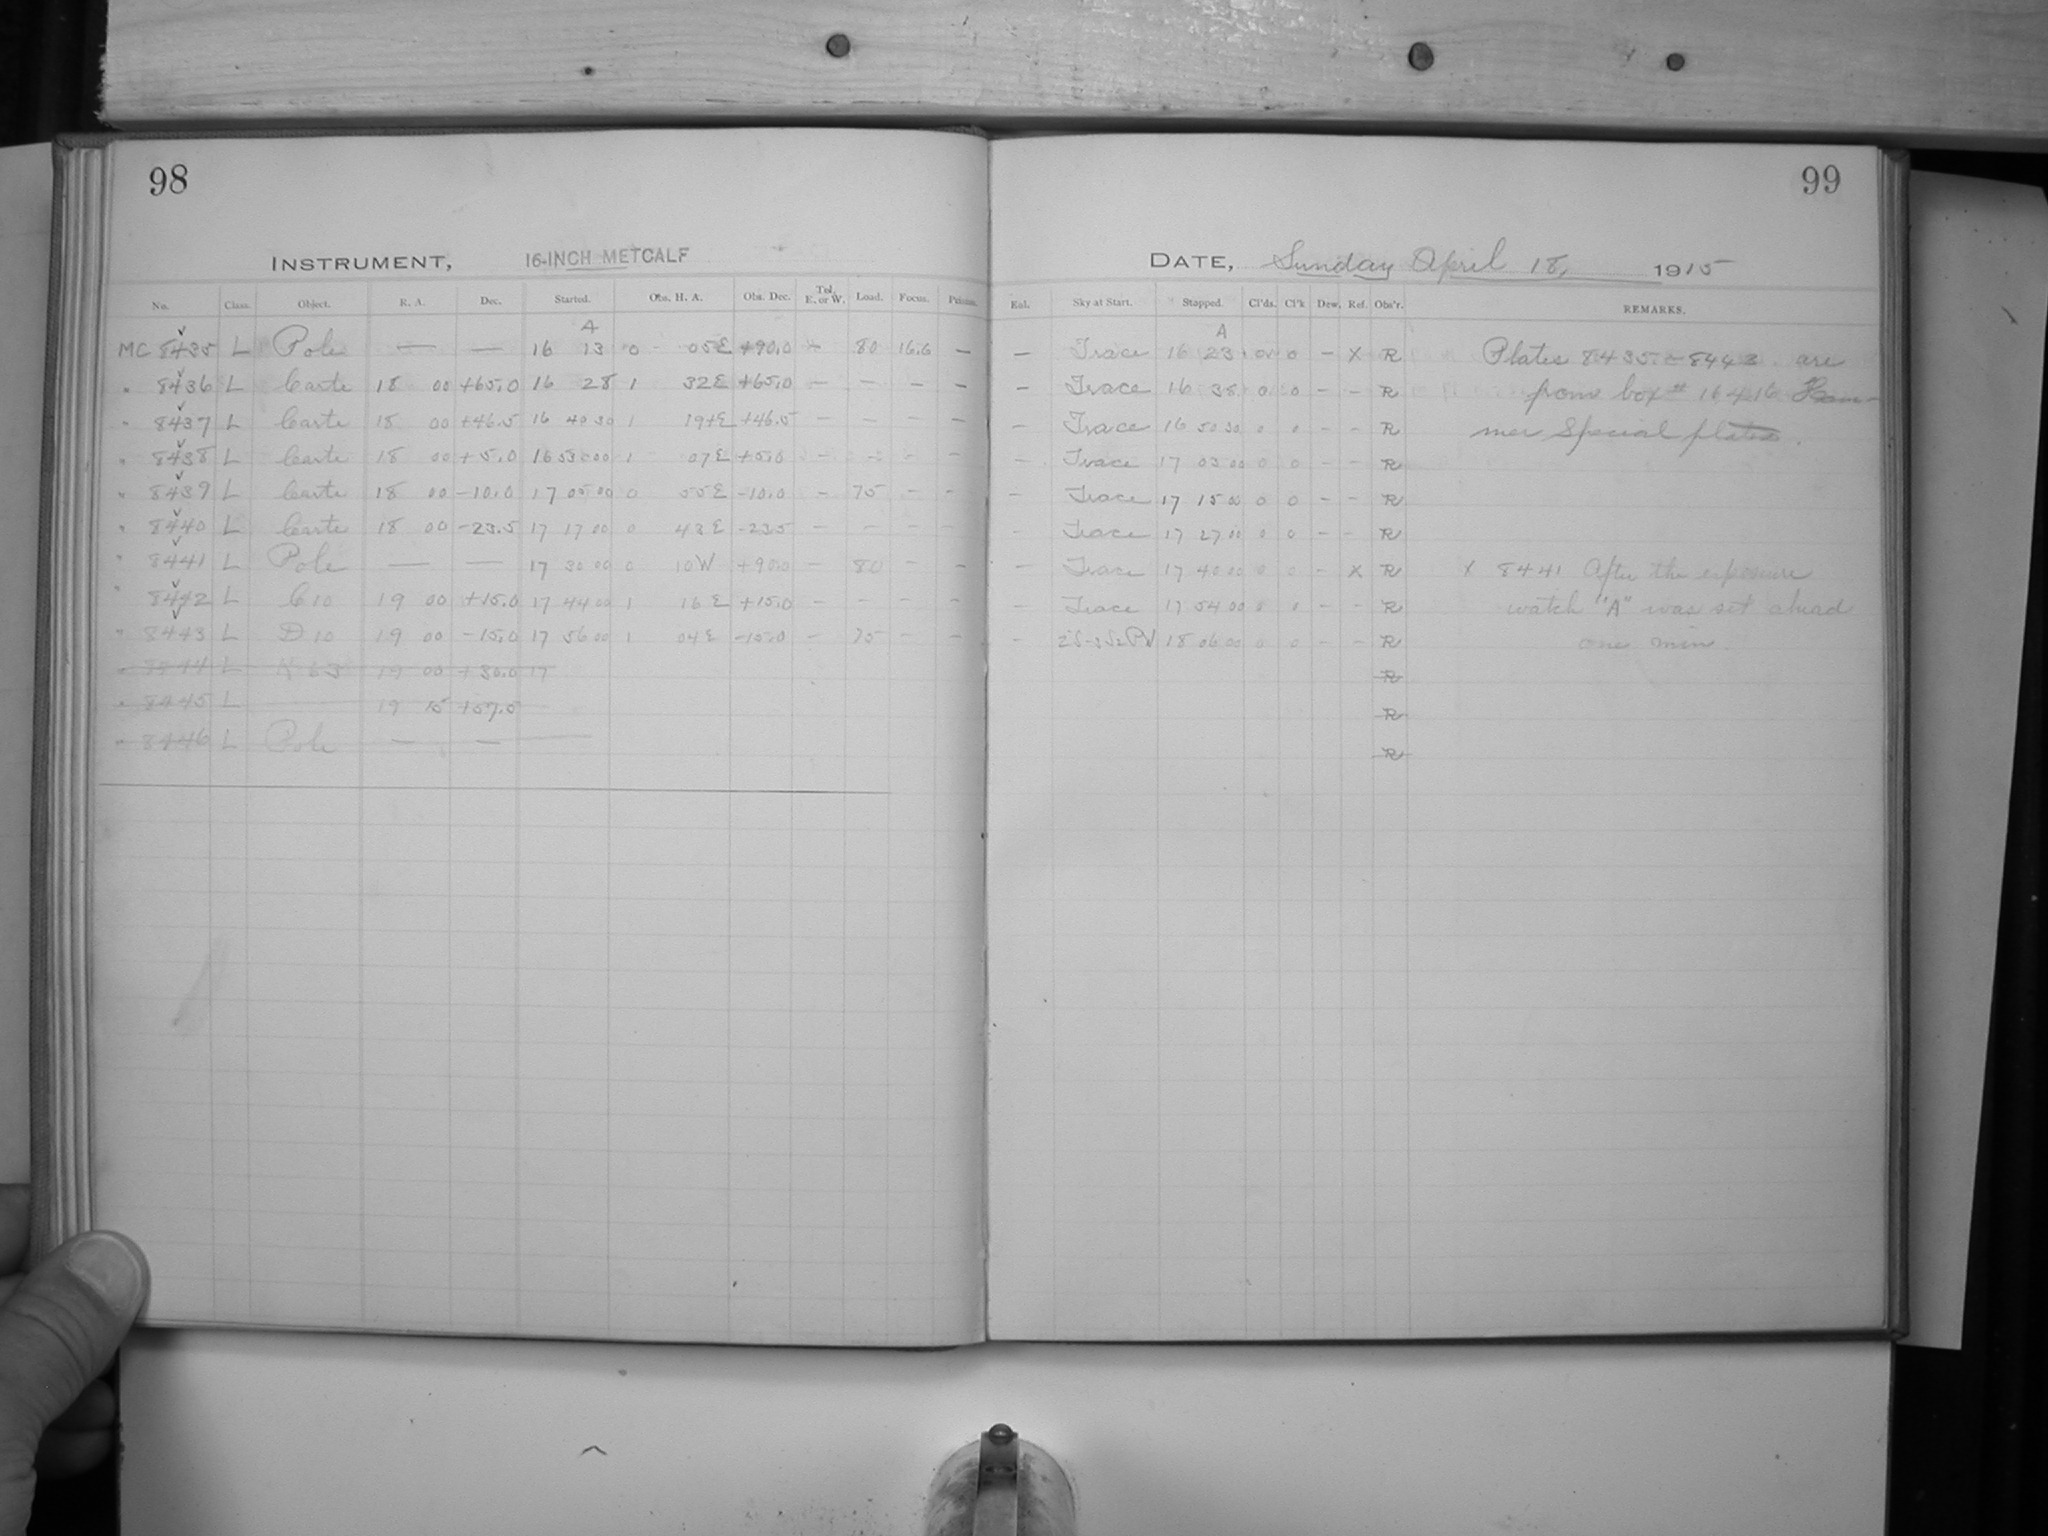 98
INSTRUMENT, 16-INCH METCALF
No. Class. Object. R. A. Dec. Started. Obs. H. A. Obs. Dec. Tel. E. or W. Load. Focus. Prisms.
A
MC 8435 L Pole — — 16 13 0 05 E +90.0 – 80 16.6 –
" 8436 L Carte 18 00 +65.0 16 28 1 32 E +65.0 – – – –
" 8437 L Carte 18 00 +46.5 16 40 30 1 19 E +46.5 – – – –
" 8438 L Carte 18 00 +5.0 16 53 00 1 07 E +5.0 – – – –
" 8439 L Carte 18 00 -10.0 17 05 00 0 55 E -10.0 – 75 – –
" 8440 L Carte 18 00 -23.5 17 17 00 0 43 E -23.5 – – – –
" 8441 L Pole — — 17 30 00 0 10 W +90.0 – 80 – –
" 8442 L C 10 19 00 +15.0 17 44 00 1 16 E +15.0 – – – –
" 8443 L D 10 19 00 -15.0 17 56 00 1 04 E -15.0 – 75 – –
" 8444 L 19 00 +30.0 17
" 8445 L 19 15 +57.5
" 8446 L Pole — —
99
DATE, Sunday April 18, 1915
Eol. Sky at Start. Stopped. Cl'ds. Cl'k Dew. Ref. Obs'r. REMARKS.
A
– Trace 16 23 0 – X R Plates 8435 – 8443 are
– Trace 16 38 0 0 – – R from box # 16416 Ham-
– Trace 16 50 30 0 0 – – R mer Special plates.
– Trace 17 03 00 0 0 – – R
– Trace 17 15 00 0 0 – – R
– Trace 17 27 00 0 0 – – R
– Trace 17 40 00 0 0 – X R X 8441 After the exposure
– Trace 17 54 00 0 0 – – R watch "A" was set ahead
– 18 06 00 0 0 – – R one min.
R
R
R